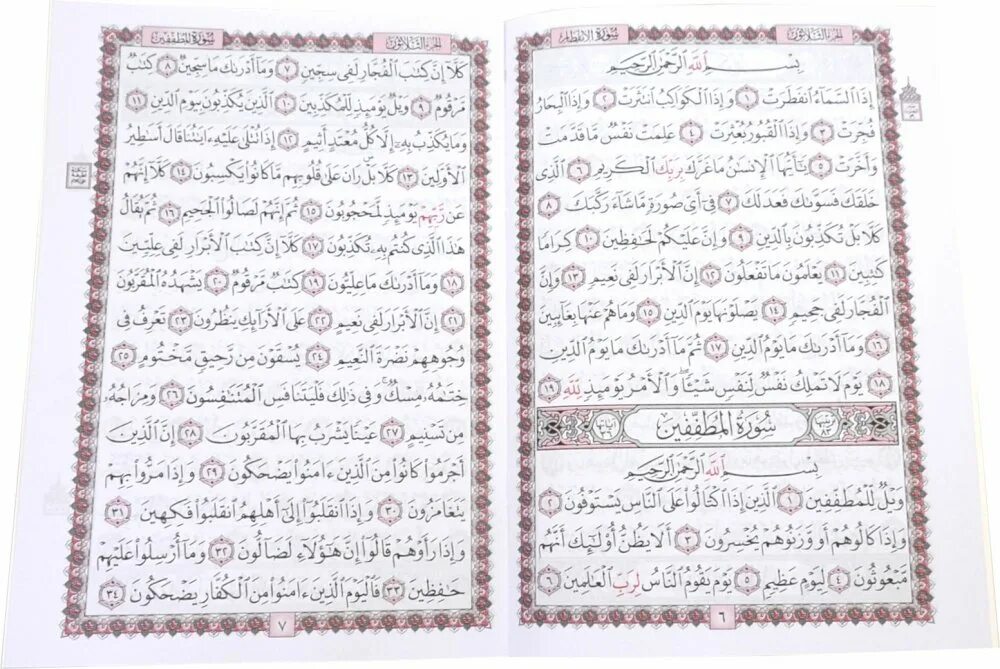 الجزء الثلاثون
سورة الانفطار
بسم الله الرحمن الرحيم
إِذَا السَّمَاءُ انفَطَرَتْ ١ وَإِذَا الْكَوَاكِبُ انتَثَرَتْ ٢ وَإِذَا الْبِحَارُ
فُجِّرَتْ ٣ وَإِذَا الْقُبُورُ بُعْثِرَتْ ٤ عَلِمَتْ نَفْسٌ مَّا قَدَّمَتْ
وَأَخَّرَتْ ٥ يَٰأَيُّهَا الْإِنسَٰنُ مَا غَرَّكَ بِرَبِّكَ الْكَرِيمِ ٦ الَّذِي
خَلَقَكَ فَسَوَّىٰكَ فَعَدَلَكَ ٧ فِي أَيِّ صُورَةٍ مَّا شَاءَ رَكَّبَكَ ٨
كَلَّا بَلْ تُكَذِّبُونَ بِالدِّينِ ٩ وَإِنَّ عَلَيْكُمْ لَحَٰفِظِينَ ١٠ كِرَامًا
كَٰتِبِينَ ١١ يَعْلَمُونَ مَا تَفْعَلُونَ ١٢ إِنَّ الْأَبْرَارَ لَفِي نَعِيمٍ ١٣ وَإِنَّ
الْفُجَّارَ لَفِي جَحِيمٍ ١٤ يَصْلَوْنَهَا يَوْمَ الدِّينِ ١٥ وَمَا هُمْ عَنْهَا بِغَائِبِينَ
١٦ وَمَا أَدْرَىٰكَ مَا يَوْمُ الدِّينِ ١٧ ثُمَّ مَا أَدْرَىٰكَ مَا يَوْمُ الدِّينِ
١٨ يَوْمَ لَا تَمْلِكُ نَفْسٌ لِّنَفْسٍ شَيْئًا وَالْأَمْرُ يَوْمَئِذٍ لِّلَّهِ ١٩
سُورَةُ الْمُطَفِّفِينَ
بسم الله الرحمن الرحيم
وَيْلٌ لِّلْمُطَفِّفِينَ ١ الَّذِينَ إِذَا اكْتَالُوا عَلَى النَّاسِ يَسْتَوْفُونَ ٢
وَإِذَا كَالُوهُمْ أَو وَّزَنُوهُمْ يُخْسِرُونَ ٣ أَلَا يَظُنُّ أُولَٰئِكَ أَنَّهُم
مَّبْعُوثُونَ ٤ لِيَوْمٍ عَظِيمٍ ٥ يَوْمَ يَقُومُ النَّاسُ لِرَبِّ الْعَٰلَمِينَ ٦
٦
الجزء الثلاثون
سورة المطففين
كَلَّا إِنَّ كِتَٰبَ الْفُجَّارِ لَفِي سِجِّينٍ ٧ وَمَا أَدْرَىٰكَ مَا سِجِّينٌ ٨ كِتَٰبٌ
مَّرْقُومٌ ٩ وَيْلٌ يَوْمَئِذٍ لِّلْمُكَذِّبِينَ ١٠ الَّذِينَ يُكَذِّبُونَ بِيَوْمِ الدِّينِ ١١
وَمَا يُكَذِّبُ بِهِ إِلَّا كُلُّ مُعْتَدٍ أَثِيمٍ ١٢ إِذَا تُتْلَىٰ عَلَيْهِ ءَايَٰتُنَا قَالَ أَسَٰطِيرُ
الْأَوَّلِينَ ١٣ كَلَّا بَلْ رَانَ عَلَىٰ قُلُوبِهِم مَّا كَانُوا يَكْسِبُونَ ١٤ كَلَّا إِنَّهُمْ
عَن رَّبِّهِمْ يَوْمَئِذٍ لَّمَحْجُوبُونَ ١٥ ثُمَّ إِنَّهُمْ لَصَالُوا الْجَحِيمِ ١٦ ثُمَّ يُقَالُ
هَٰذَا الَّذِي كُنتُم بِهِ تُكَذِّبُونَ ١٧ كَلَّا إِنَّ كِتَٰبَ الْأَبْرَارِ لَفِي عِلِّيِّينَ
١٨ وَمَا أَدْرَىٰكَ مَا عِلِّيُّونَ ١٩ كِتَٰبٌ مَّرْقُومٌ ٢٠ يَشْهَدُهُ الْمُقَرَّبُونَ
٢١ إِنَّ الْأَبْرَارَ لَفِي نَعِيمٍ ٢٢ عَلَى الْأَرَائِكِ يَنظُرُونَ ٢٣ تَعْرِفُ فِي
وُجُوهِهِمْ نَضْرَةَ النَّعِيمِ ٢٤ يُسْقَوْنَ مِن رَّحِيقٍ مَّخْتُومٍ ٢٥
خِتَٰمُهُ مِسْكٌ وَفِي ذَٰلِكَ فَلْيَتَنَافَسِ الْمُتَنَٰفِسُونَ ٢٦ وَمِزَاجُهُ
مِن تَسْنِيمٍ ٢٧ عَيْنًا يَشْرَبُ بِهَا الْمُقَرَّبُونَ ٢٨ إِنَّ الَّذِينَ
أَجْرَمُوا كَانُوا مِنَ الَّذِينَ ءَامَنُوا يَضْحَكُونَ ٢٩ وَإِذَا مَرُّوا بِهِمْ
يَتَغَامَزُونَ ٣٠ وَإِذَا انقَلَبُوا إِلَىٰ أَهْلِهِمُ انقَلَبُوا فَكِهِينَ ٣١
وَإِذَا رَأَوْهُمْ قَالُوا إِنَّ هَٰؤُلَاءِ لَضَالُّونَ ٣٢ وَمَا أُرْسِلُوا عَلَيْهِمْ
حَٰفِظِينَ ٣٣ فَالْيَوْمَ الَّذِينَ ءَامَنُوا مِنَ الْكُفَّارِ يَضْحَكُونَ ٣٤
٧